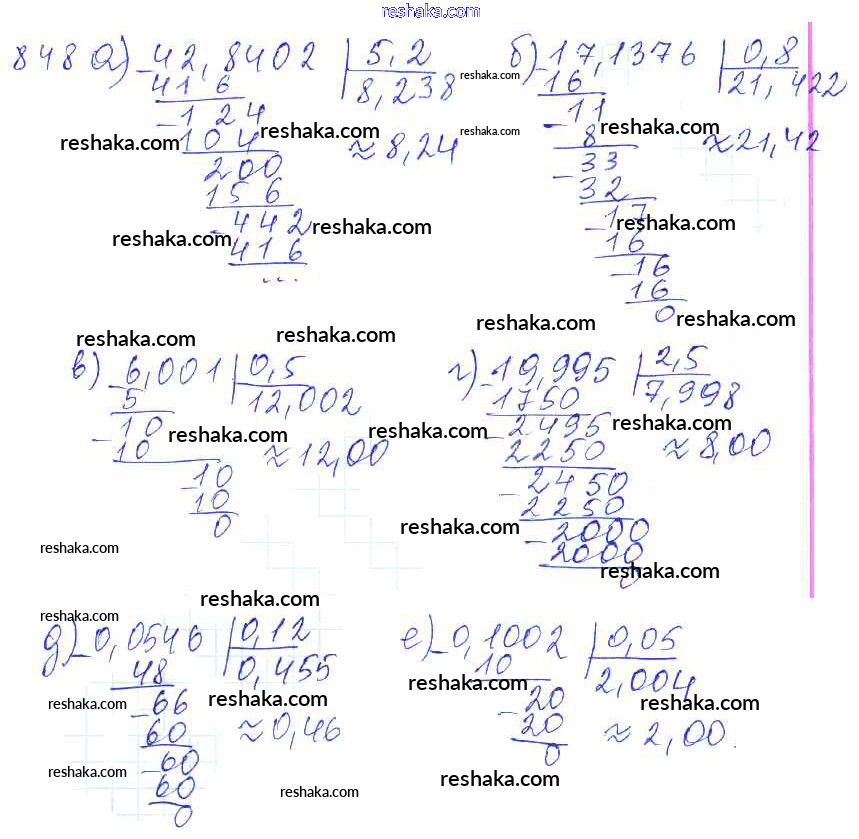 reshaka.com
848 а) 42,8402 | 5,2 б) 17,1376 | 0,8
41 6 8,238 reshaka.com 16 21,422
1 24 11
reshaka.com 104 reshaka.com ≈ 8,24 reshaka.com 8 reshaka.com ≈ 21,42
200 33
156 32
reshaka.com 442 reshaka.com 17 reshaka.com
416 16
... 16
16
0 reshaka.com
reshaka.com reshaka.com reshaka.com
в) 6,001 | 0,5 г) 19,995 | 2,5
5 12,002 1750 7,998
10 reshaka.com reshaka.com 2495 reshaka.com
10 ≈ 12,00 2250 ≈ 8,00
10 2450
10 2250
0 reshaka.com 2000
reshaka.com 2000 reshaka.com
0
reshaka.com
reshaka.com
д) 0,0546 | 0,12 е) 0,1002 | 0,05
48 0,455 10 2,004
reshaka.com 66 reshaka.com reshaka.com 20 reshaka.com
60 ≈ 0,46 20 ≈ 2,00.
60 0
reshaka.com 60 reshaka.com reshaka.com
0